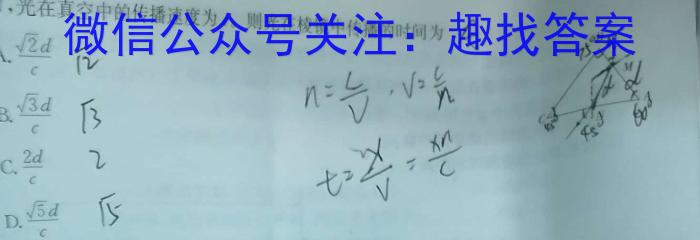 光在真空中的传播速度为 则光在棱镜中传播的时间为
微信公众号关注：趣找答案
A. √2d/c √2
B. √3d/c √3
C. 2d/c 2
D. √5d/c √5
n=c/v , v=c/n
t=x/v=xn/c
45° 60°